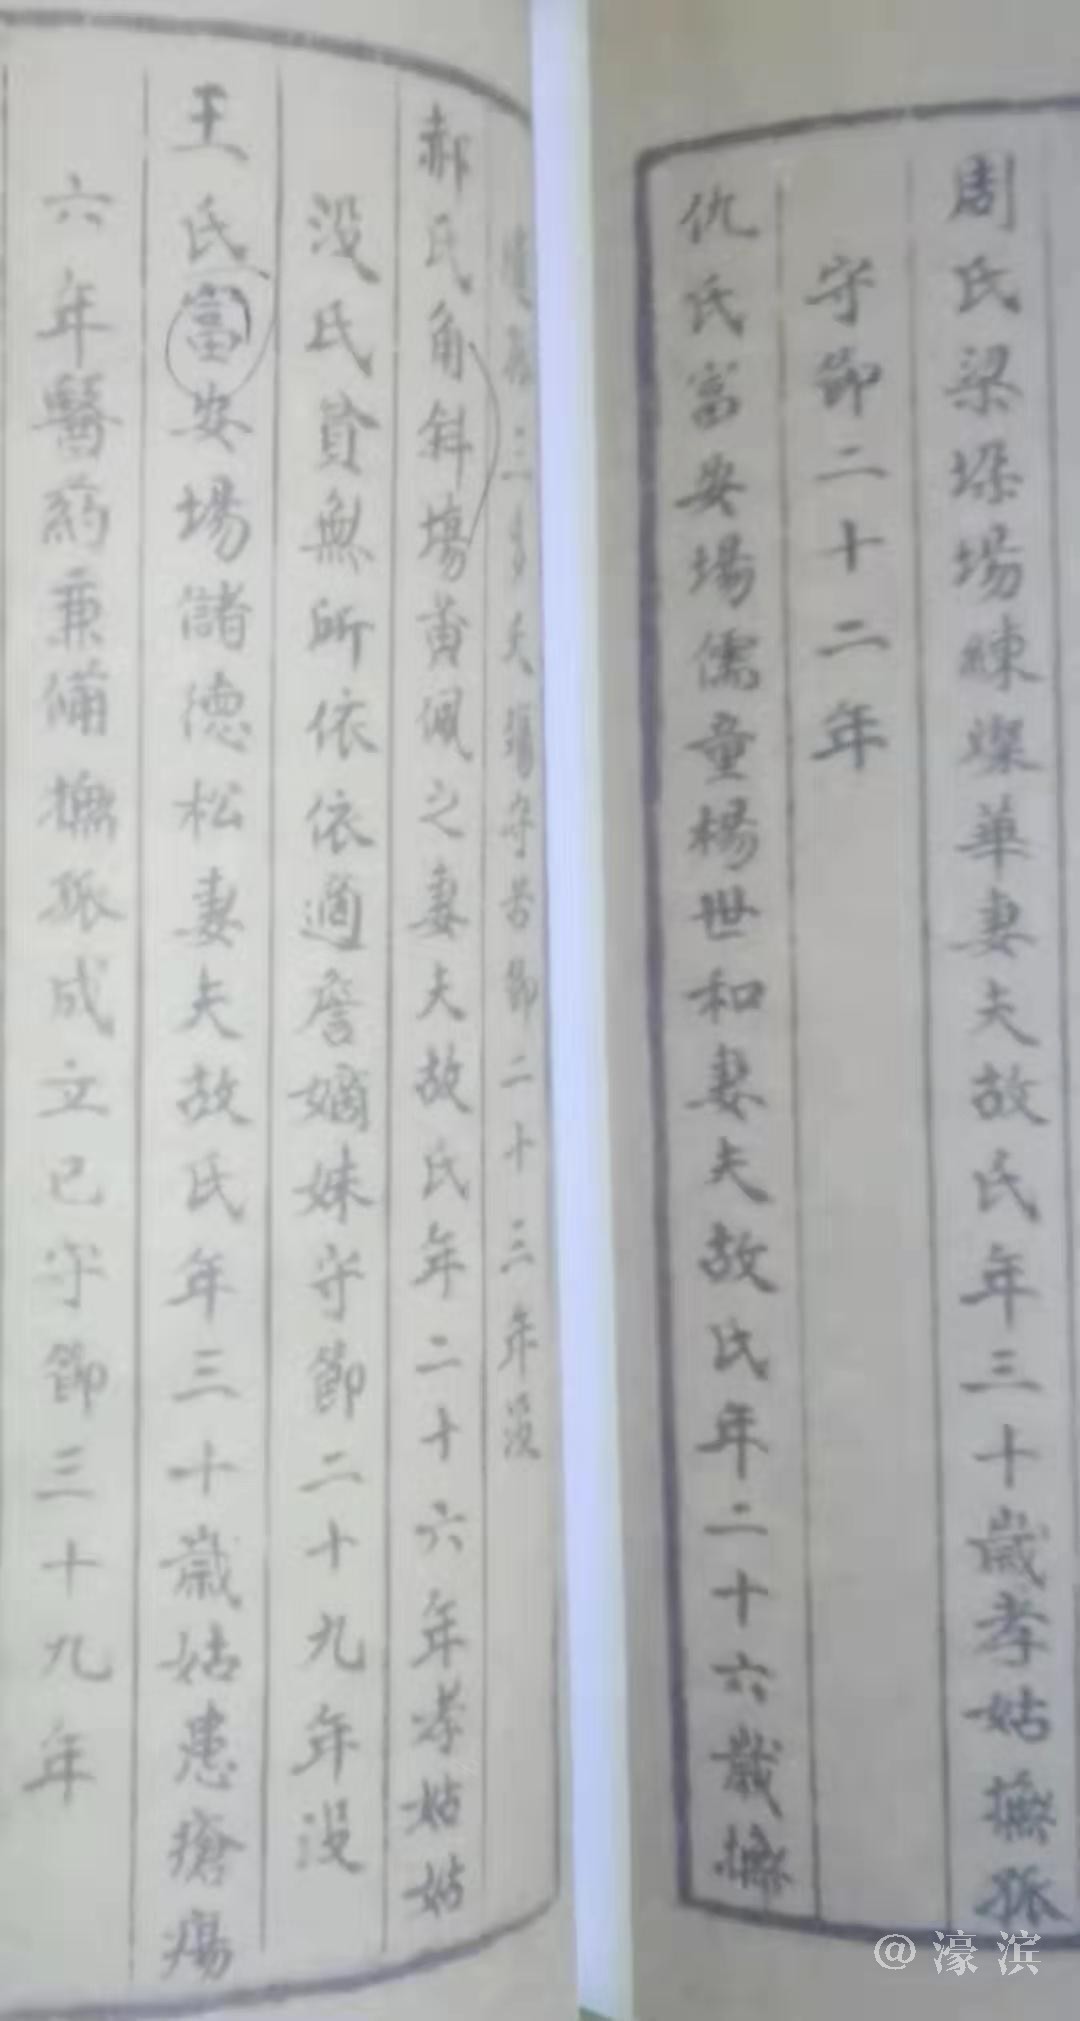 周氏梁垛場練燦華妻夫故氏年三十歲孝姑撫孤
守節二十二年
仇氏富安場儒童楊世和妻夫故氏年二十六歲撫
三 夫 守苦節二十三年沒
郝氏角斜場黃佩之妻夫故氏年二十六年孝姑姑
沒氏貧無所依依適詹嫡妹守節二十九年沒
王氏富安場儲德松妻夫故氏年三十歲姑患瘡瘍
六年醫药兼備撫孤成立已守節三十九年
@濠滨